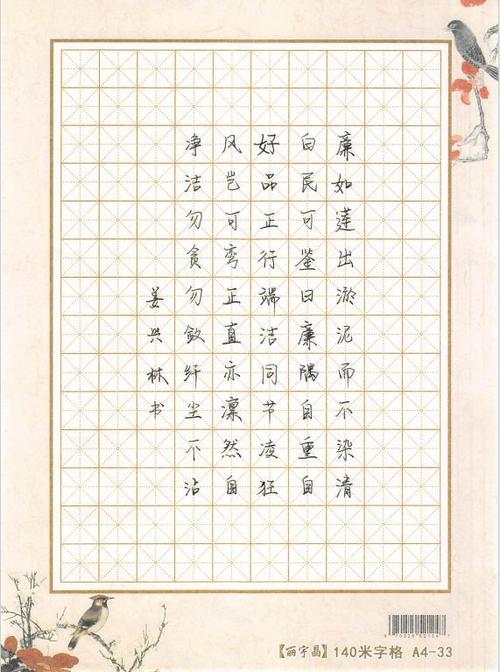 廉如莲出淤泥而不染清
白民可鉴日廉隅自重自
好品正行端洁同节凌狂
风岂可弯正直亦凛然自
净洁勿贪勿敛纤尘不沾
姜兴林书
【丽宇晶】140米字格 A4-33